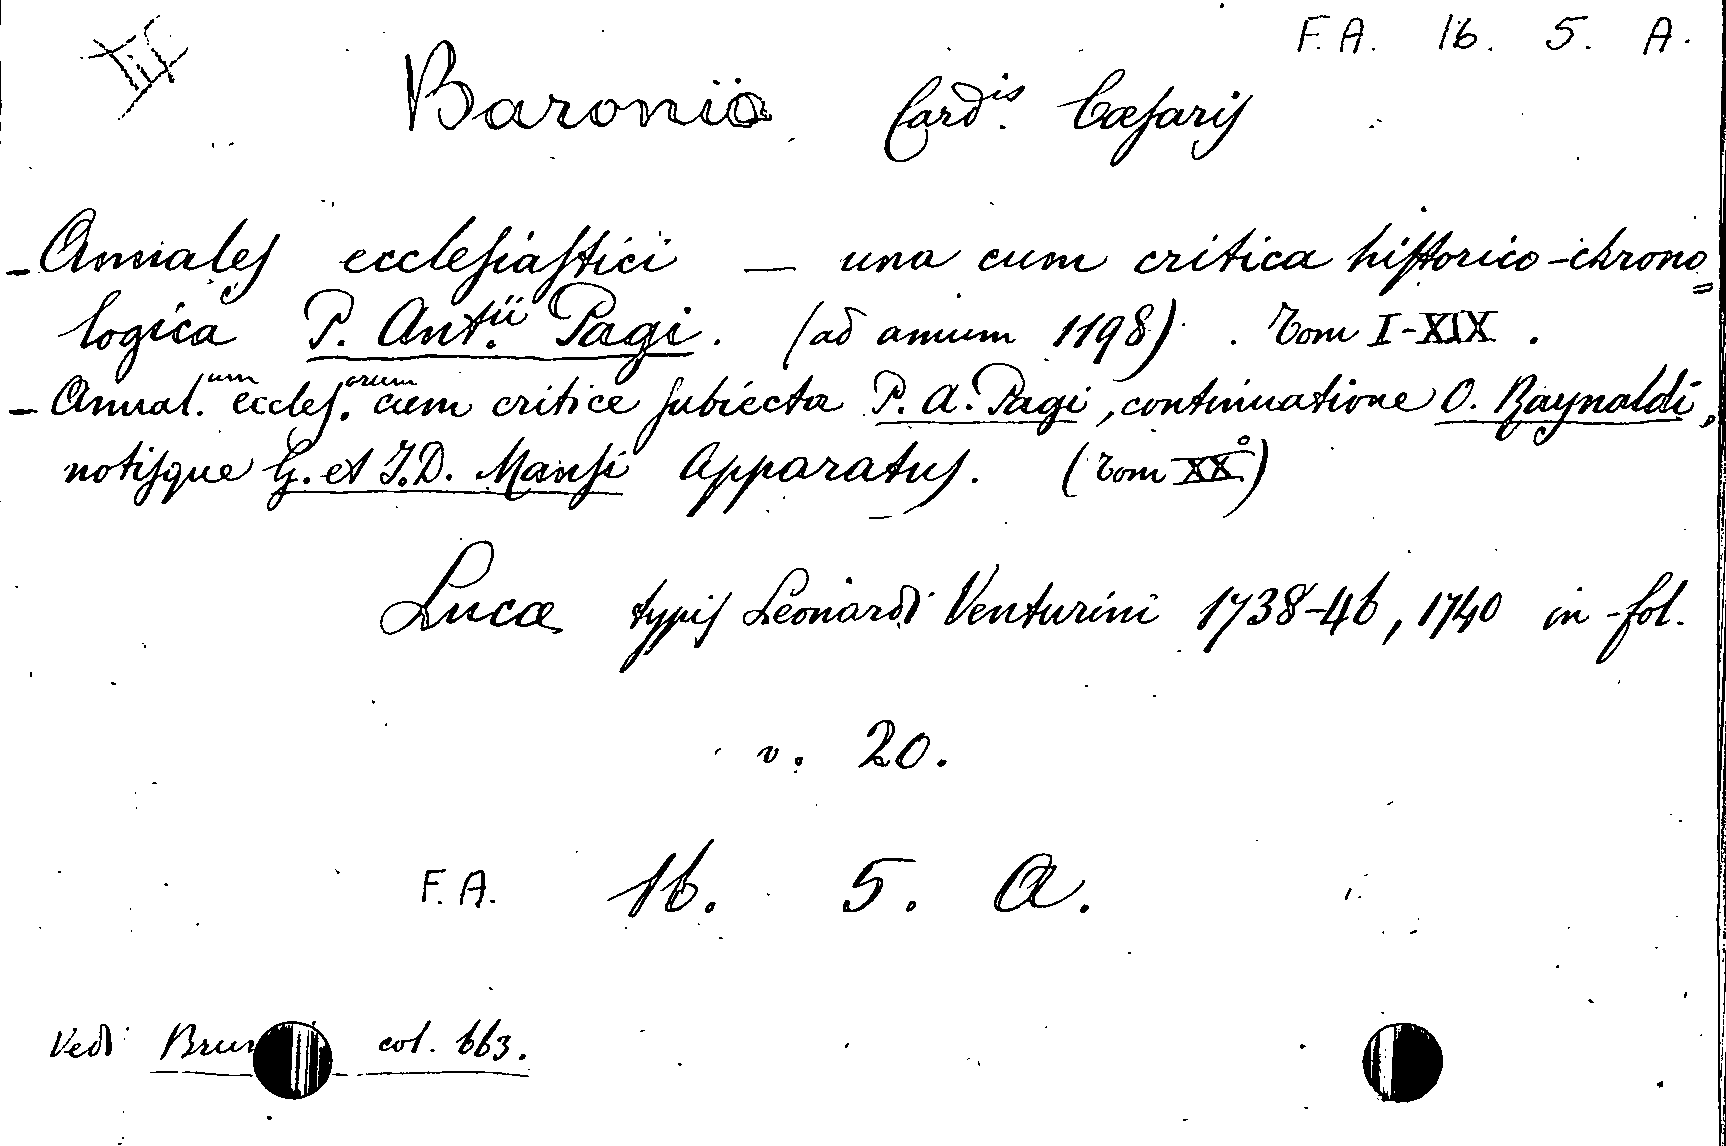 F. A. 16. 5. A.
Baronio Card.is Cæsaris
- Annales ecclesiastici — una cum critica historico-chrono=
logica P. Ant.ii Pagi. (ad annum 1198). Tom I-XIX.
- Annal.um eccles.orum cum critice subiecta P. A. Pagi, continuatione O. Raynaldi,
notisque G. et J.D. Mansi Apparatus. (Tom XX°)
Lucæ typis Leonardi Venturini 1738-46, 1740 in-fol.
v. 20.
F. A. 16. 5. A.
Vedi col. 663.